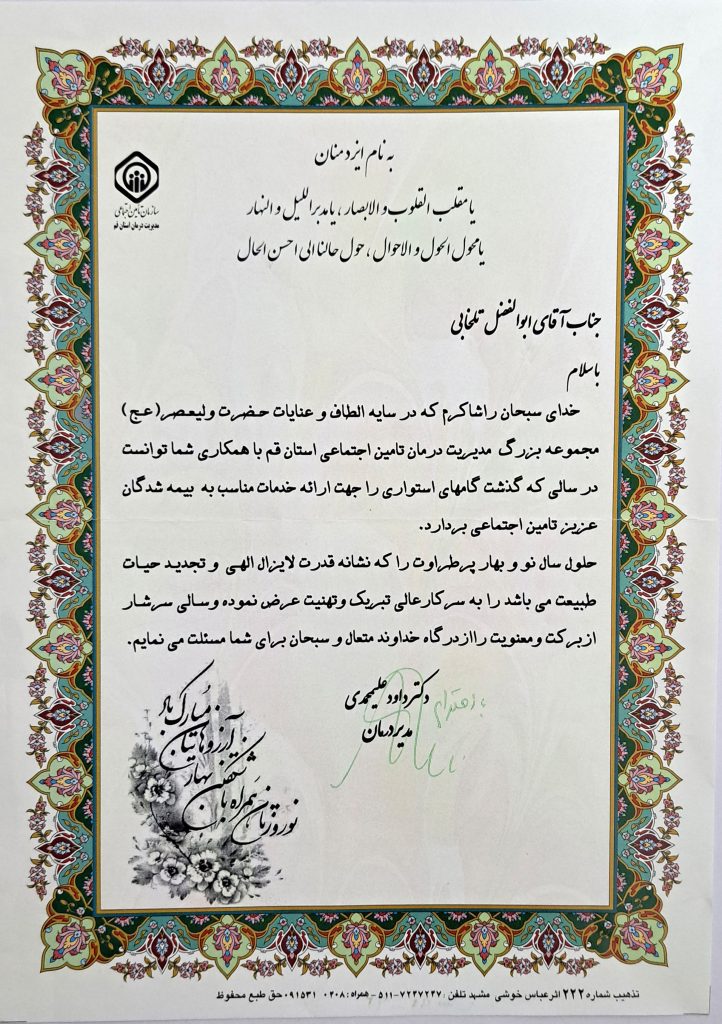 به نام ایزد منان
یا مقلب القلوب و الابصار ، یا مدبر اللیل و النهار
یا محول الحول و الاحوال ، حول حالنا الی احسن الحال
سازمان تامین اجتماعی
مدیریت درمان استان قم
جناب آقای ابوالفضل تلخابی
باسلام
خدای سبحان را شاکرم که در سایه الطاف و عنایات حضرت ولیعصر(عج)
مجموعه بزرگ مدیریت درمان تامین اجتماعی استان قم با همکاری شما توانست
در سالی که گذشت گامهای استواری را جهت ارائه خدمات مناسب به بیمه شدگان
عزیز تامین اجتماعی بردارد.
حلول سال نو و بهار پرطراوت را که نشانه قدرت لایزال الهی و تجدید حیات
طبیعت می باشد را به سرکارعالی تبریک وتهنیت عرض نموده وسالی سرشار
ازبرکت ومعنویت راازدرگاه خداوند متعال و سبحان برای شما مسئلت می نمایم.
دکتر داود علیمحمدی
مدیر درمان
با احترام
مبارک باد
آرزوهایتان
شکفتن بهار
نوروزتان همراه با
تذهیب شماره ۲۲۲ اثرعباس خوشی مشهد تلفن :۷۲۴۷۲۴۷-۵۱۱ - همراه: ۰۹۱۵۳۱ ۰۲۰۸ حق طبع محفوظ